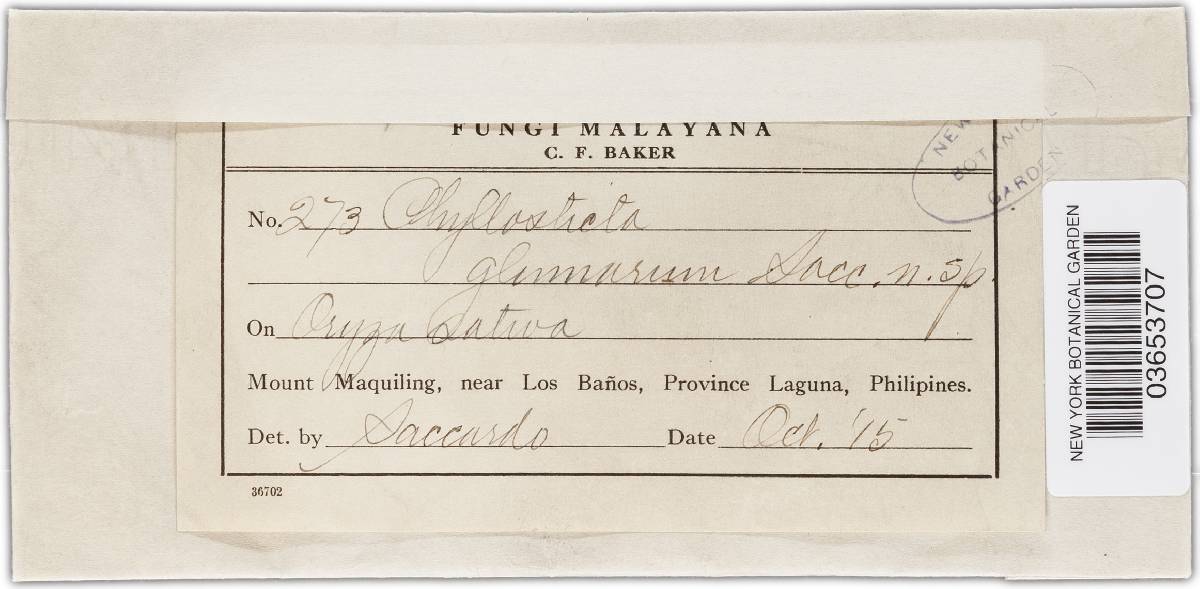 FUNGI MALAYANA
C. F. BAKER
No. 273 Phyllosticta
glumarum Sacc. n. sp.
On Oryza sativa
Mount Maquiling, near Los Baños, Province Laguna, Philipines.
Det. by Saccardo Date Oct. '15
36702
NEW
BOTANICAL
GARDEN
NEW YORK BOTANICAL GARDEN
03653707